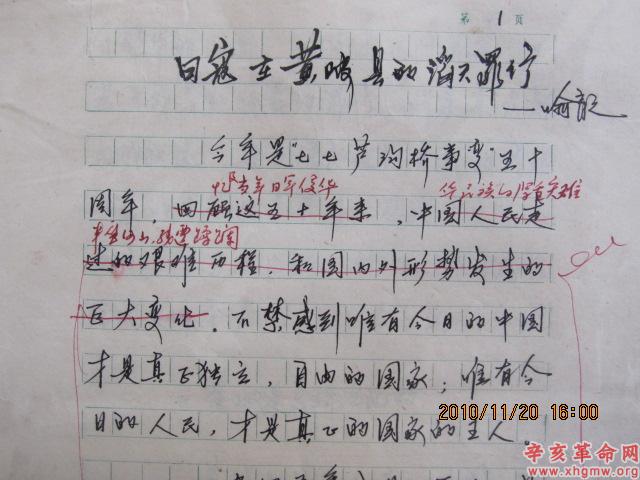 第 1 页
日寇在黄陂县的滔天罪行
——喻歆
今年是"七七芦沟桥事变"五十
忆当年日军侵华
华民族的深重灾难
周年，回顾这五十年来，中国人民走
半壁山山，残遭蹂躏
过的艰难历程，和国内外形势发生的
巨大变化。不禁感到唯有今日的中国
才是真正独立，自由的国家；唯有今
日的人民，才是真正的国家的主人。
2010/11/20 16:00
辛亥革命网
www.xhgmw.org